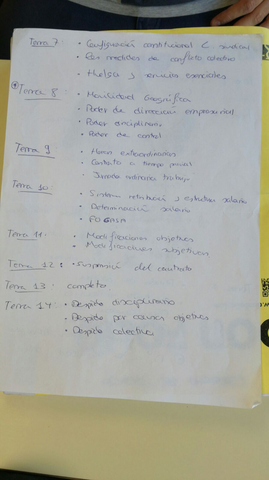 Tema 7 • Configuración constitucional L. sindical
• medidas de conflicto colectivo
• Huelga y servicios esenciales
Tema 8: • Movilidad Geográfica
• Poder de dirección empresarial
• Poder disciplinario
• Poder de control
Tema 9 • Horas extraordinarias
• Contrato a tiempo parcial
• Jornada ordinaria trabajo
Tema 10 • Sistema retribución y estructura salario
• Determinación salario
• FOGASA
Tema 11 • Modificaciones objetivas
• Modificaciones subjetivas
Tema 12: • Suspensión del contrato
Tema 13 • completo
Tema 14 • Despido disciplinario
• Despido por causas objetivas
• Despido colectivo